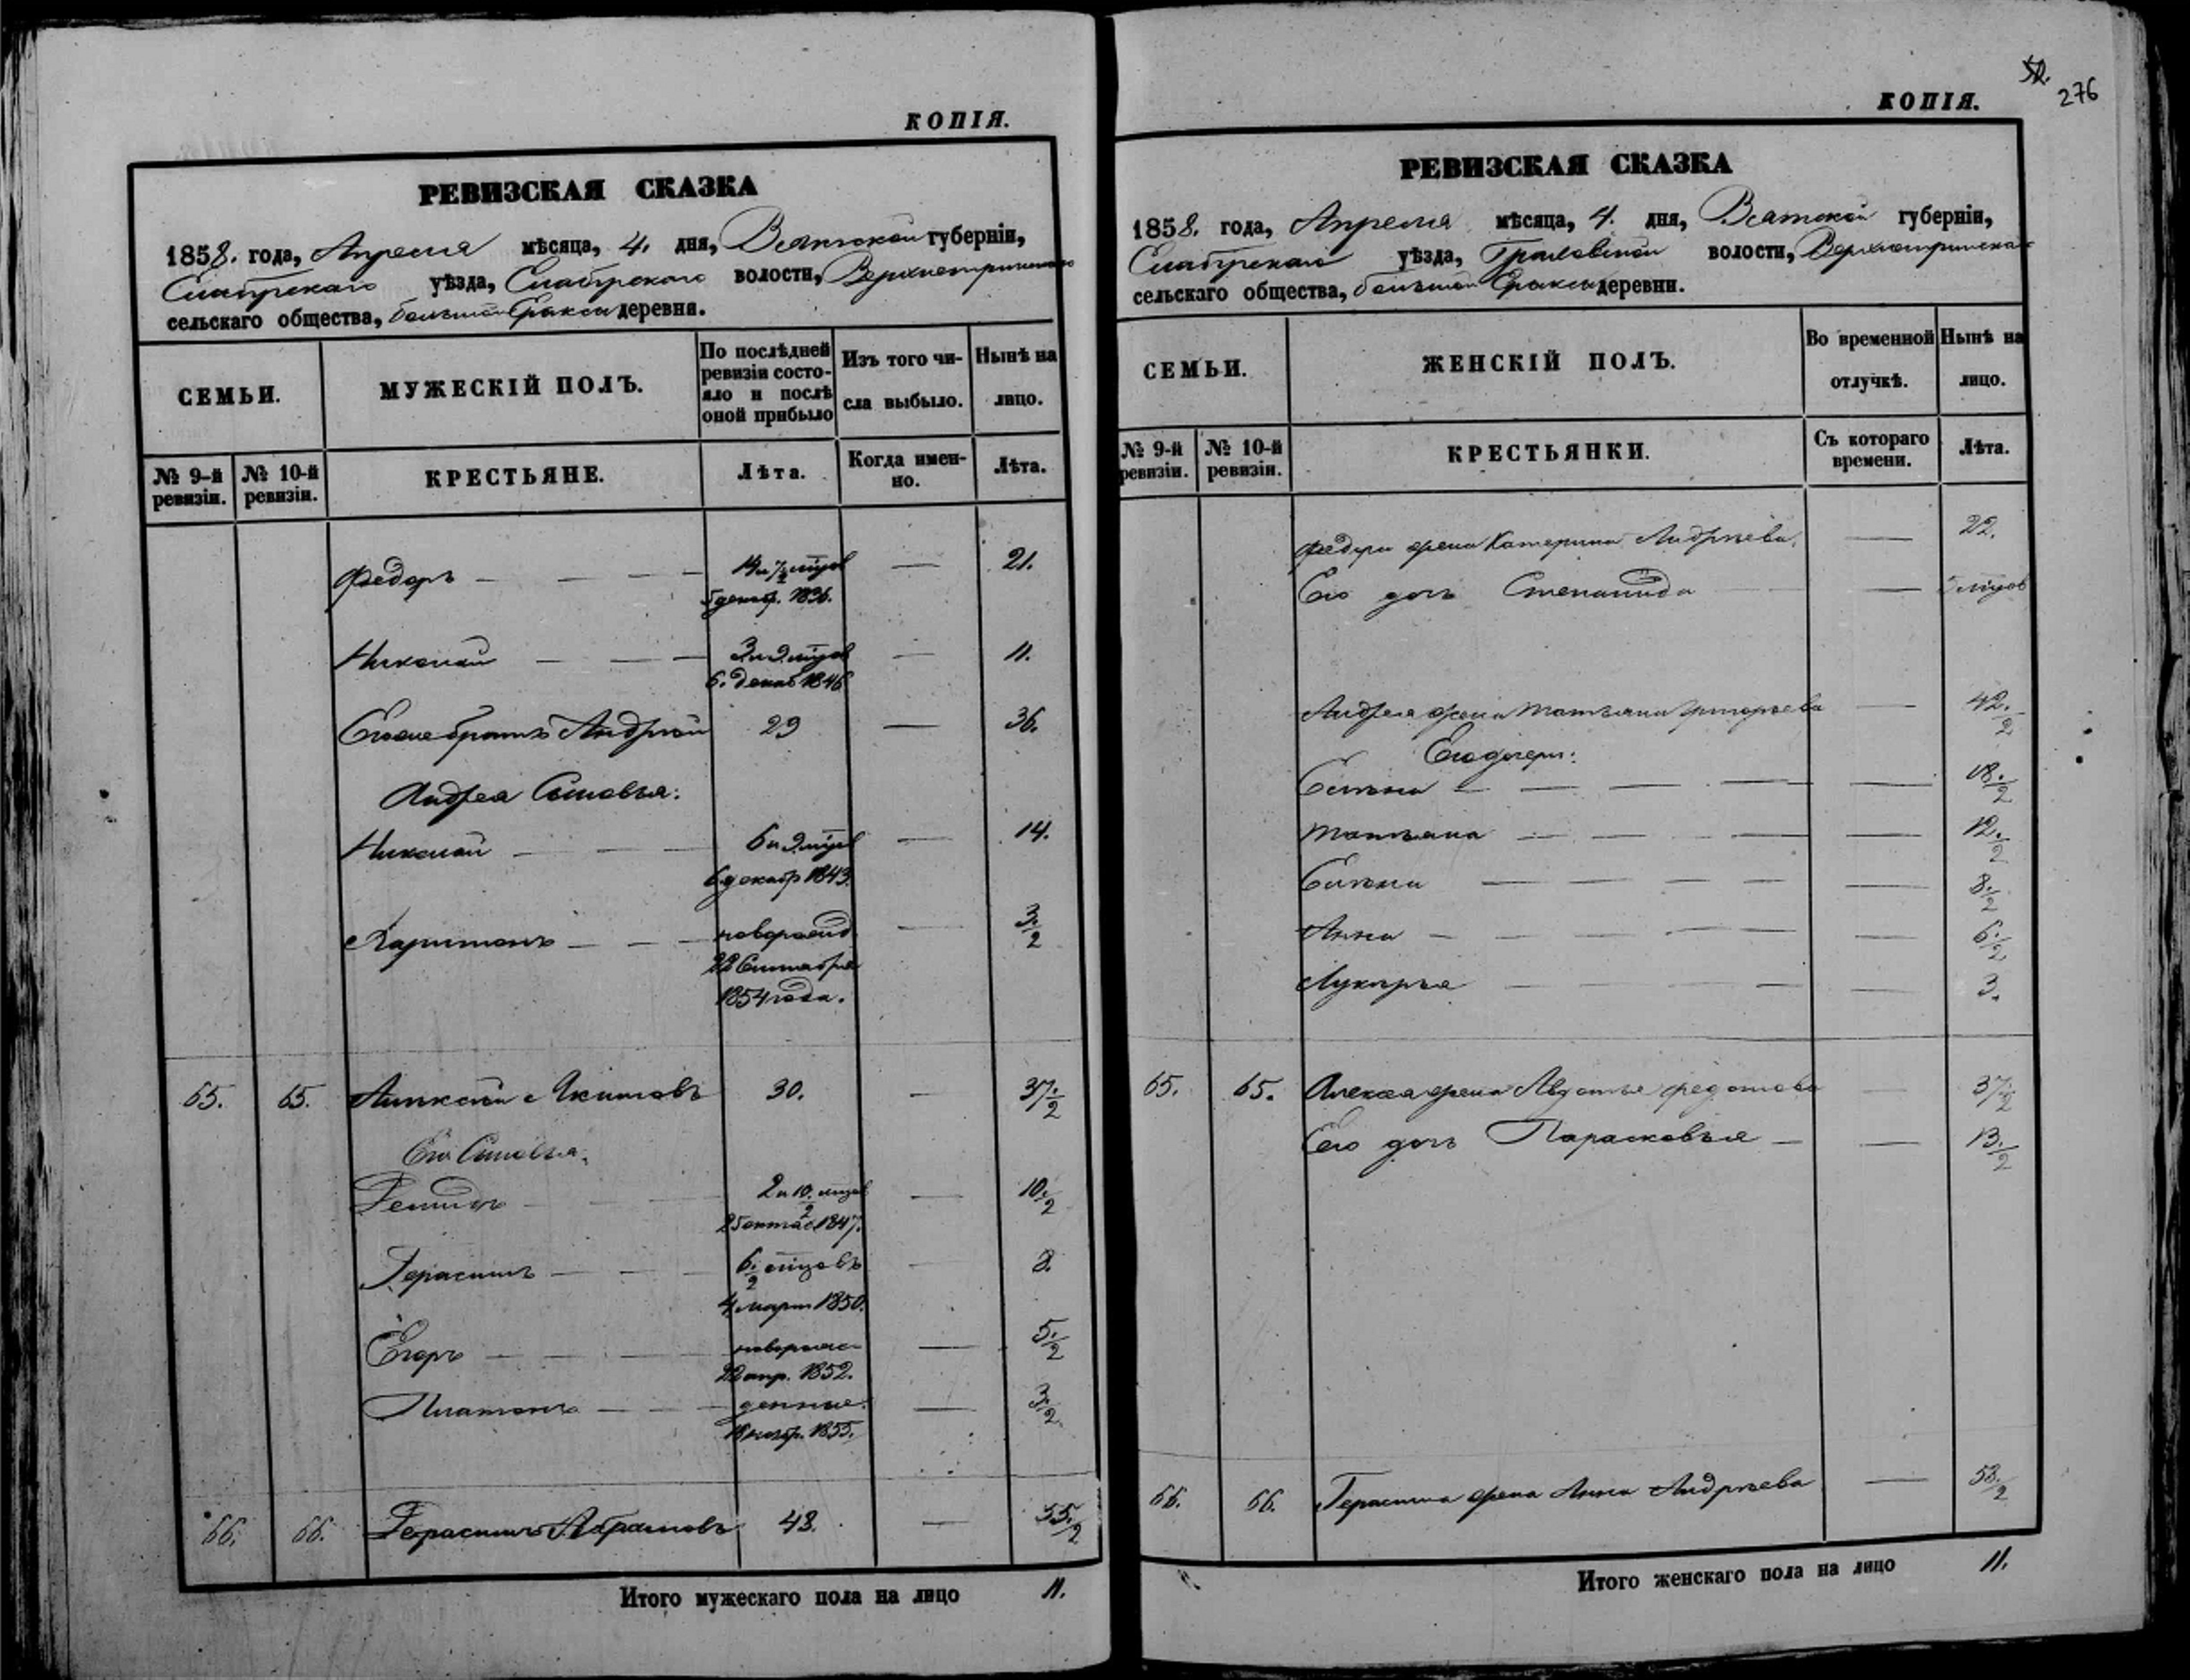 КОПІЯ.
РЕВИЗСКАЯ СКАЗКА
1858. года, Апреля мѣсяца, 4. дня, Вятской губерніи,
уѣзда, волости,
сельскаго общества, деревни.
СЕМЬИ.
МУЖЕСКІЙ ПОЛЪ.
По послѣдней ревизіи состо-
яло и послѣ
оной прибыло
Изъ того чи-
сла выбыло.
Нынѣ на
лицо.
№ 9-й
ревизіи.
№ 10-й
ревизіи.
КРЕСТЬЯНЕ.
Лѣта.
Когда имен-
но.
Лѣта.
Федоръ — — — — 21.
1836.
Николай — — — — 11.
6. декаб 1846
Его же братъ Андрей 29 — 36.
Андрея Сыновья:
Николай — — — — 14.
6 декабр 1843.
Харитонъ — — — новорожд — 3.½
22 Сентября
1854 года.
65. 65. Алексей Екимовъ 30. — 37.½
Его Сыновья.
— 10.½
25 октяб 1847.
Герасимъ — — — 6.½ мцовъ — 8.
4 март 1850.
Егоръ — — — новорож — 5.½
22 апр. 1852.
Платонъ — — — денные. — 3.½
18 ноябр. 1855.
66. 66. Герасимъ Абрамовъ 48. — 55.½
Итого мужескаго пола на лицо 11.
КОПІЯ.
276
РЕВИЗСКАЯ СКАЗКА
1858. года, Апреля мѣсяца, 4. дня, Вятской губерніи,
уѣзда, волости,
сельскаго общества, деревни.
СЕМЬИ.
ЖЕНСКІЙ ПОЛЪ.
Во временной
отлучкѣ.
Нынѣ на
лицо.
№ 9-й
ревизіи.
№ 10-й
ревизіи.
КРЕСТЬЯНКИ.
Съ котораго
времени.
Лѣта.
Федора жена Катерина Андрѣева. — 22.
Его дочь Степанида —
Андрея жена Татьяна Григорьева — 42.½
Его дочери:
Елѣна — — — — — 18.½
Татьяна — — — — — 12.½
Елѣна — — — — — 8.½
Анна — — — — — 6.½
Лукерья — — — — — 3.
65. 65. Алексея жена Авдотья Федотова — 37.½
Его дочь Парасковья — — 13.½
66. 66. Герасима жена Анна Андрѣева — 53.½
Итого женскаго пола на лицо 11.